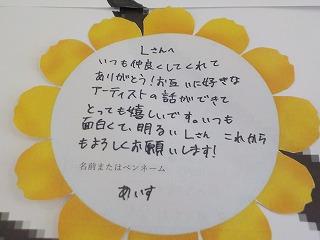 Lさんへ
いつも仲良くしてくれて
ありがとう!お互いに好きな
アーティストの話ができて
とっても嬉しいです。いつも
面白くて、明るいLさん これから
もよろしくお願いします!
名前またはペンネーム
めいす